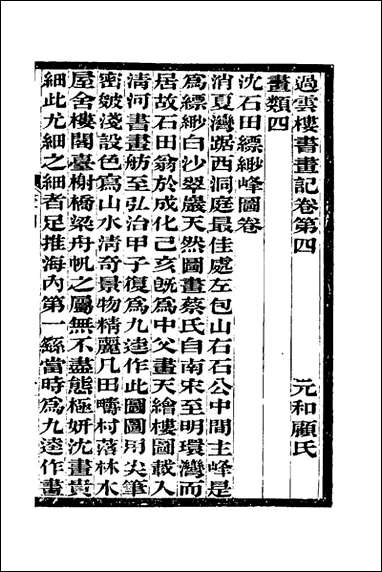 過雲樓書畫記卷第四　元和顧氏
畫類四
沈石田縹緲峰圖卷
消夏灣踞西洞庭最佳處左包山右石公中間主峰是
爲縹緲白沙翠巖天然圖畫蔡氏自南宋至明環灣而
居故石田翁於成化己亥旣爲中父畫天繪樓圖載入
清河書畫舫至弘治甲子復爲九逵作此圖圖用尖筆
密皴淺設色寫山水清奇景物精麗凡田疇村落林水
屋舍樓閣臺榭橋梁舟帆之屬無不盡態極妍沈畫貴
細此尤細之細者足推海內第一緜當時爲九逵作畫